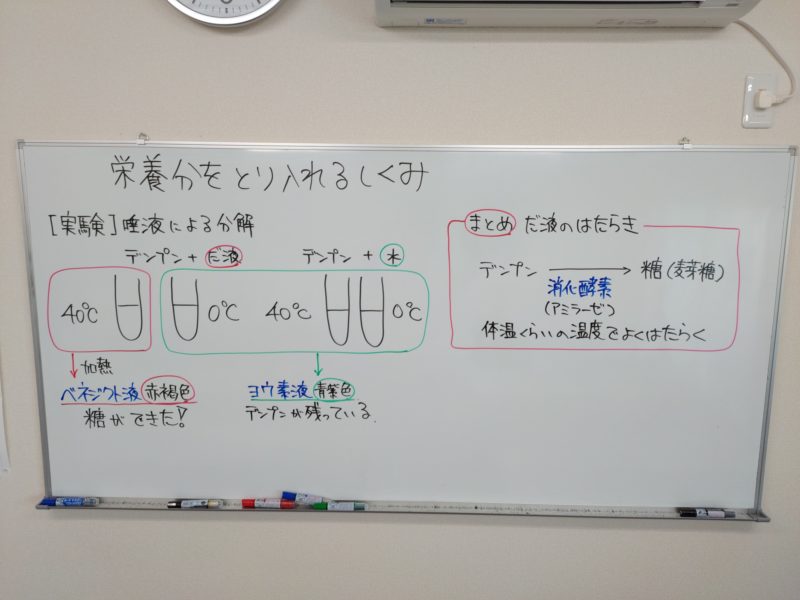 栄養分をとり入れるしくみ
[実験]唾液による分解
デンプン + だ液
デンプン + 水
40℃
0℃
40℃
0℃
加熱
ベネジクト液 赤褐色
糖ができた!
ヨウ素液 青紫色
デンプンが残っている.
まとめ だ液のはたらき
デンプン → 糖(麦芽糖)
消化酵素
(アミラーゼ)
体温くらいの温度でよくはたらく